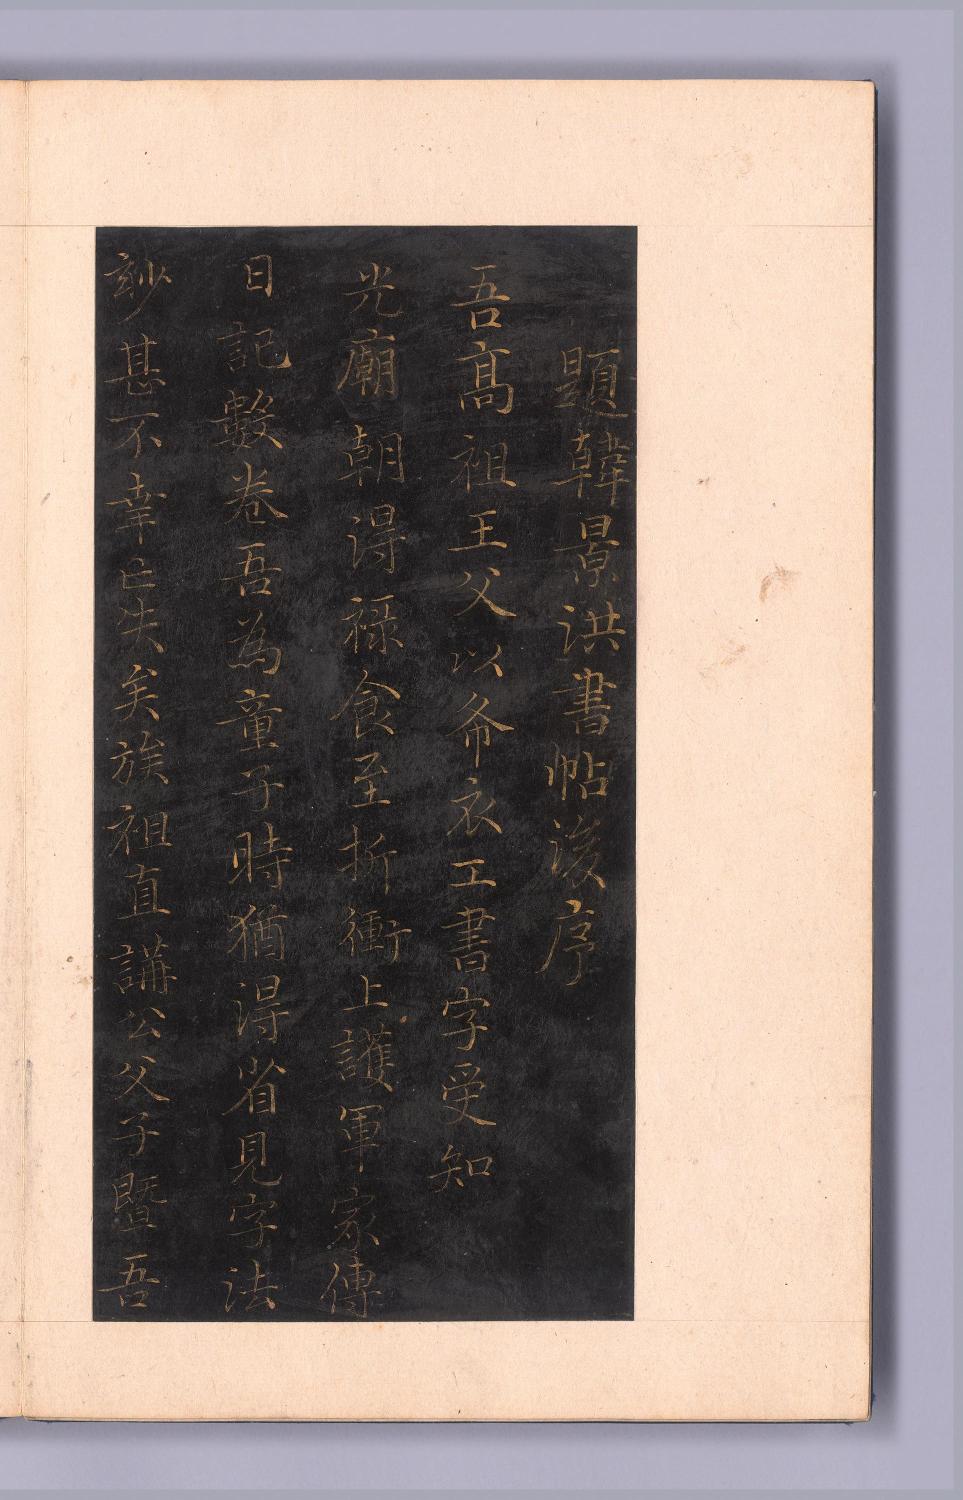 題韓景洪書帖後序
吾髙祖王父以布衣工書字受知
光廟朝得禄食至折衝上護軍家傳
日記數卷吾為童子時猶得省見字法
玅甚不幸亡失矣族祖直講公父子曁吾